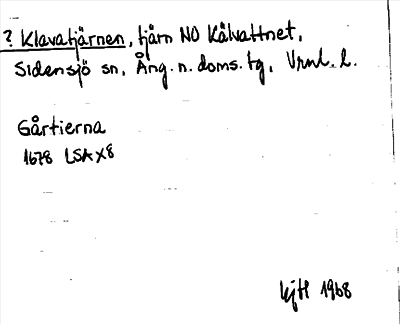 ? Klavatjärnen, tjärn NO Kälvattnet,
Sidensjö sn, Ång. n. doms. tg, Vrnl. l.
Gårtierna
1678 LSA X8
KjH 1968